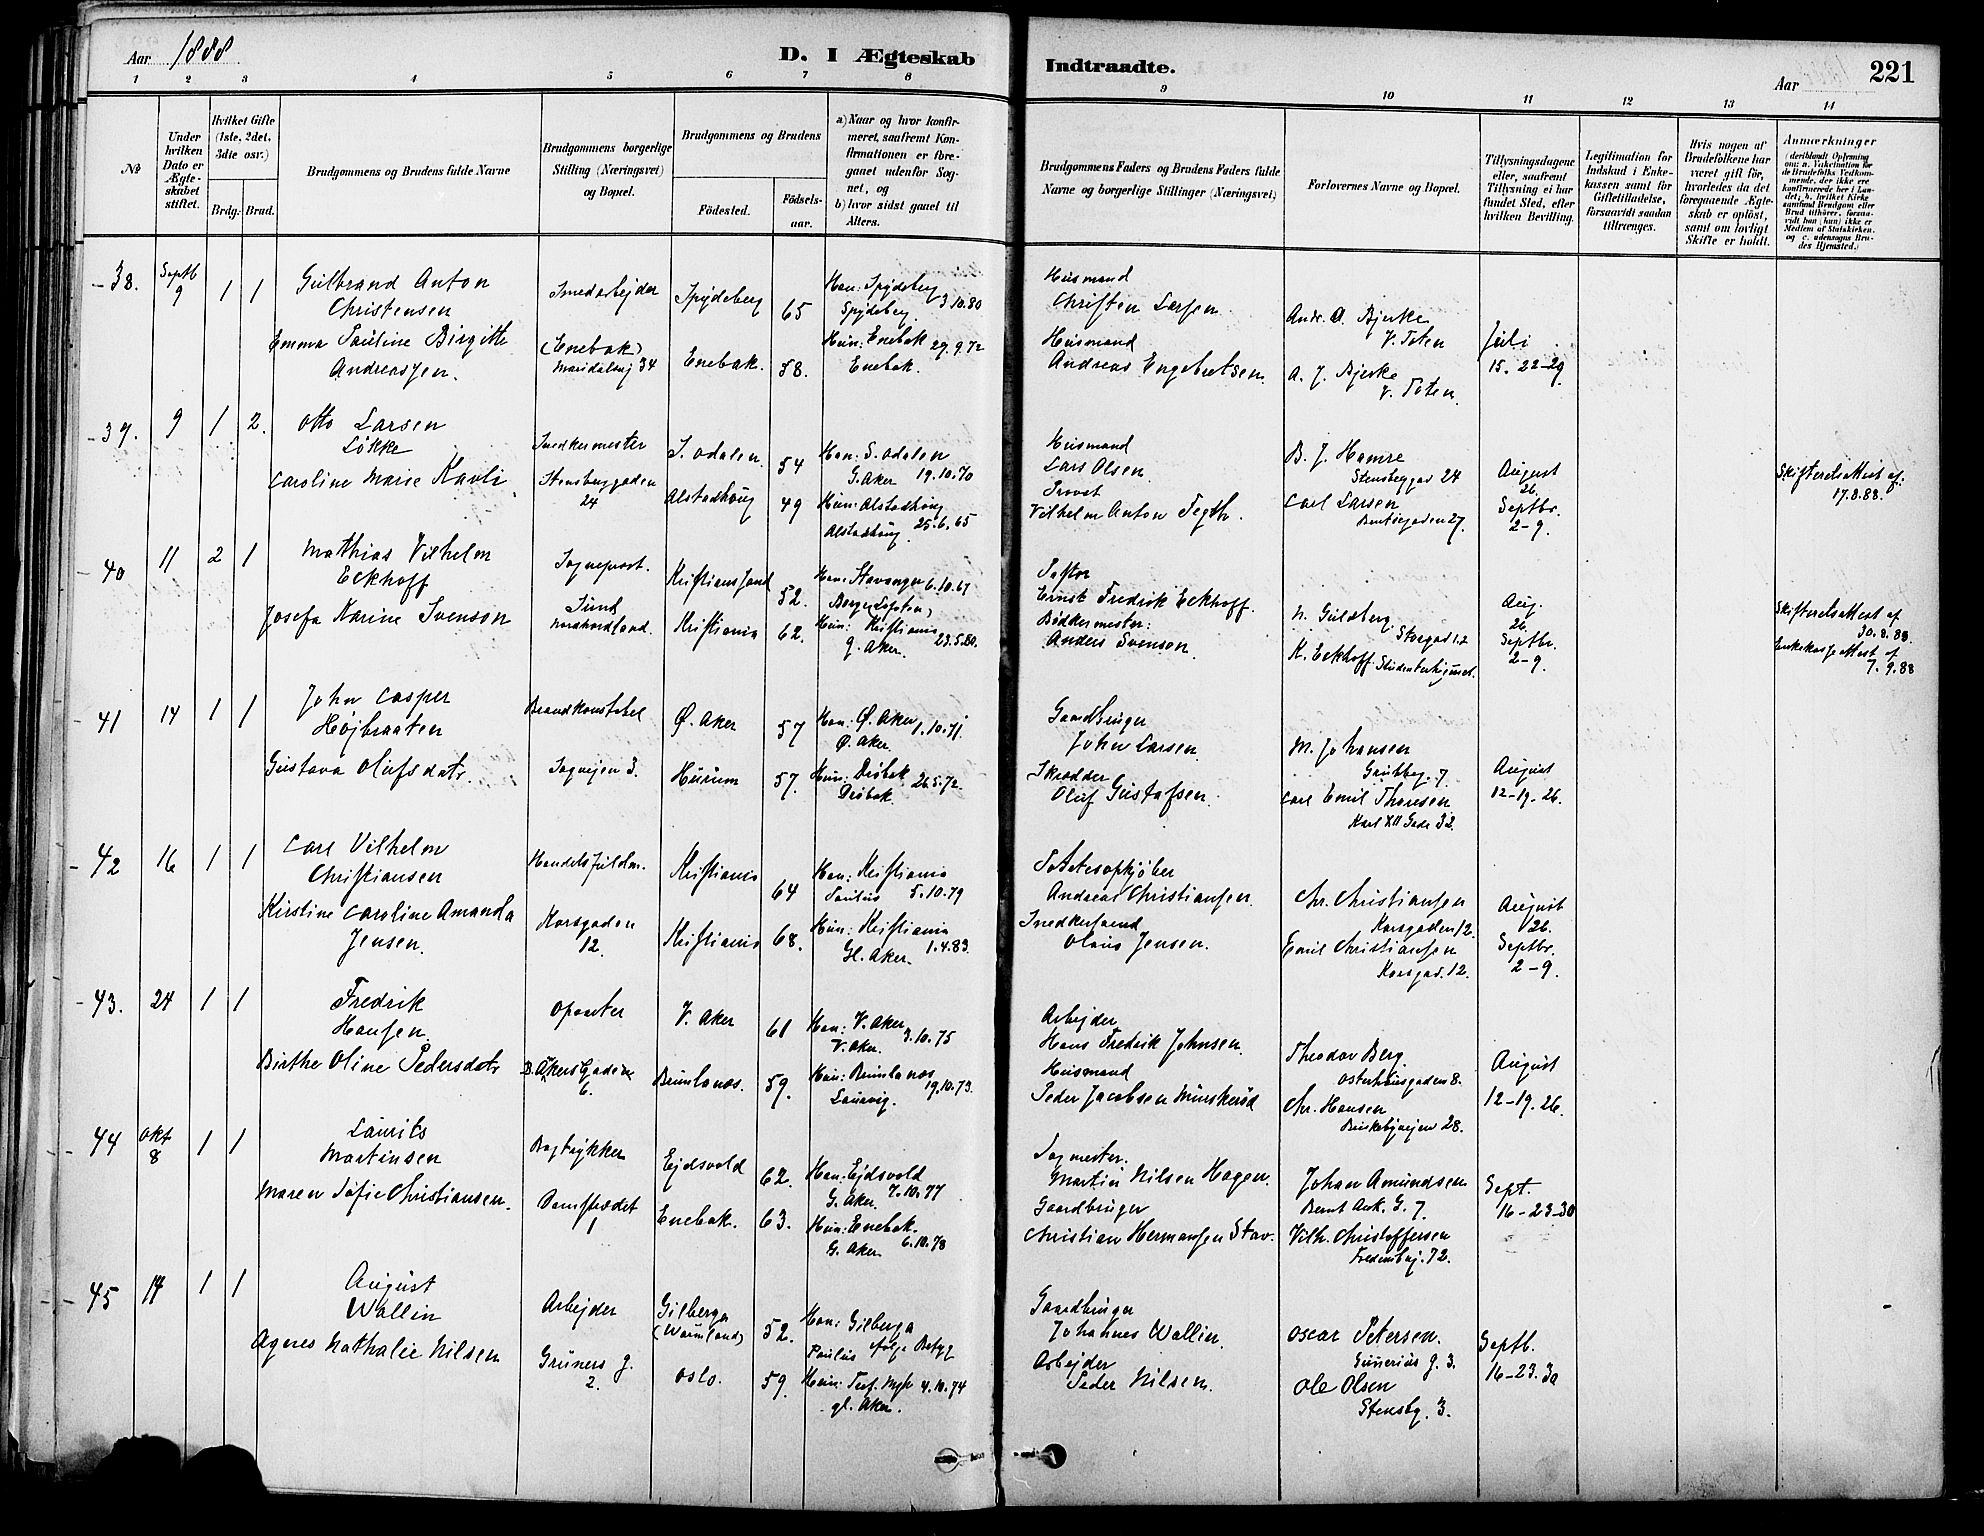 Aar 1888.
D. I Ægteskab Indtraadte.
Aar 221
1 2 3 4 5 6 7 8 9 10 11 12 13 14
No
Under hvilken Dato er Ægteskabet stiftet.
Hvilket Gifte (1ste, 2det, 3die osv.)
Brdg. Brud.
Brudgommens og Brudens fulde Navne
Brudgommens borgerlige Stilling (Næringsvei) og Bopæl.
Brudgommens og Brudens
Fødested. Fødselsaar.
a) Naar og hvor konfirmeret, saafremt Konfirmationen er foregaaet udenfor Sognet, og
b) hvor sidst gaaet til Alters.
Brudgommens Faders og Brudens Faders fulde Navne og borgerlige Stillinger (Næringsvei)
Forlovernes Navne og Bopæl.
Tillysningsdagene eller, saafremt Tillysning ei har fundet Sted, efter hvilken Bevilling.
Legitimation for Indskud i Enkekassen samt for Giftetilladelse, forsaavidt saadan tiltrænges.
Hvis nogen af Brudefolkene har været gift før, hvorledes da det foregaaende Ægteskab er opløst, samt om lovligt Skifte er holdt.
Anmærkninger
(deriblandt Oplysning om: a. Vakcination for de Brudefolks Vedkommende, der ikke ere konfirmerede her i Landet; b. hvilket Kirkesamfund Brudgom eller Brud tilhører, forsaavidt han (hun) ikke er Medlem af Statskirken, og c. udensogns Brudes Hjemsted.)
38. Septb 9 1 1
Gulbrand Anton
Christensen
Emma Pauline Birgitte
Andreassen.
Smedarbejder
(Enebak)
Maridalsvj 34
Spydeberg 65
Enebak. 58.
Han: Spydeberg 3.10.80
Spydeberg.
Hun: Enebak 29.9.72
Enebak.
Husmand
Christen Larsen
Husmand
Andreas Engebretsen.
Andr. A. Bjerke
V. Toten
A. J. Bjerke
V. Toten
Juli
15. 22-29
39. 9 1 2.
Otto Larsen
Løkke
Caroline Marie Kavli
Snedkermester
Stensberggaden
24
S. Odalen. 54
Alstadhoug 49
Han: S. Odalen
G. Aker 19.10.70
Hun: Alstadhoug
Alstadhoug 25.6.65
Husmand
Lars Olsen
Provst
Vilhelm Anton Tegth.
B. J. Hamre
Stensbeggad 24
Carl Larsen
27.
August
26.
Septbr.
2-9.
Skifteretsattest af
17.8.88.
40 11 2 1
Mathias Vilhelm
Eckhoff
Josefa Karine Svenson
Sogneprest.
Sund
Nordhordland.
Kristiansand 52.
Kristiania 62.
Han: Stavanger 6.10.67
Hun: Kristiania
G. Aker. 23.5.80.
Pastor
Ernst Fredrik Eckhoff.
Bødkermester:
Anders Svenson
N. Guldberg
Storgad 12
K. Eckhoff. Studenterhjemmet.
Aug.
26
Septbr.
2-9.
Skifteretsattest af
30.8.88.
Enkekasseattest af
7.9.88
41 14 1 1
John Casper
Højbraaten
Gustava Olufsdatr.
Brandkonstabel
Sagvejen 3.
Ø. Aker 57
Hurum 57.
Han: Ø. Aker 1.10.71.
Ø. Aker.
Hun: Drøbak 26.5.72.
Drøbak.
Gaardbruger
John Larsen
Skrædder
Oluf Gustafsen.
M. Johansen
Grubbeg. 7
Carl Emil Thoresen
Karl XII Gade 32.
August
12-19-26.
42 16 1 1
Carl Vilhelm
Christiansen
Kirstine Caroline Amanda
Jensen.
Handelsfuldm.
Korsgaden
12.
Kristiania 64
Kristiania 68.
Han: Kristiania
Paulus 5.10.79
Hun: Kristiania
Gl. Aker. 1.4.83.
Potetesopkjøber
Andreas Christiansen.
Snedkersvend
Olaus Jensen.
Chr. Christiansen
Korsgaden 12.
Emil Christiansen
Korsgad. 12.
August
26.
Septbr.
2-9.
43. 24 1 1
Fredrik
Hansen
Birthe Oline Pedersdatr
Opsynsmand
6.
V. Aker 61
Brunlanes. 59.
Han: V. Aker 3.10.75
V. Aker.
Hun: Brunlanes
Laurvig. 19.10.73.
Arbejder
Hans Fredrik Johnsen.
Husmand
Peder Jacobsen Munkerød
Theodor Berg
Osterhausgaden 8.
Chr. Hansen
28.
August
12-19.26.
44 Okt 8 1 1
Laurits
Martinsen
Maren Sofie Christiansen.
Bogtrykker
Damstrædet
1
Ejdsvold 62.
Enebak. 63.
Han: Ejdsvold
G. Aker. 7.10.77
Hun: Enebak.
G. Aker 6.10.78
Sagmester.
Martin Nilsen Hagen.
Gaardbruger
Christian Hermansen Stav.
Johan Amundsen
Bernt Ank. G. 7
Vilh. Christoffersen
Fredensbvj. 72.
Sept.
16-23-30
45 14 1 1
August
Wallin
Agnes Nathalie Nilsen
Arbejder
Grüners g.
2.
Gilberga
(Wermland) 52.
Oslo. 59.
Han: Gilberga
Paulus ifølge Betyg
Hun: 4.10.74
gl. Aker.
Gaardbruger
Johannes Wallin.
Arbejder
Peder Nilsen.
Oscar Petersen.
Gunerius g. 3.
Ole Olsen
Stensbg. 3.
Septb.
16-23.30